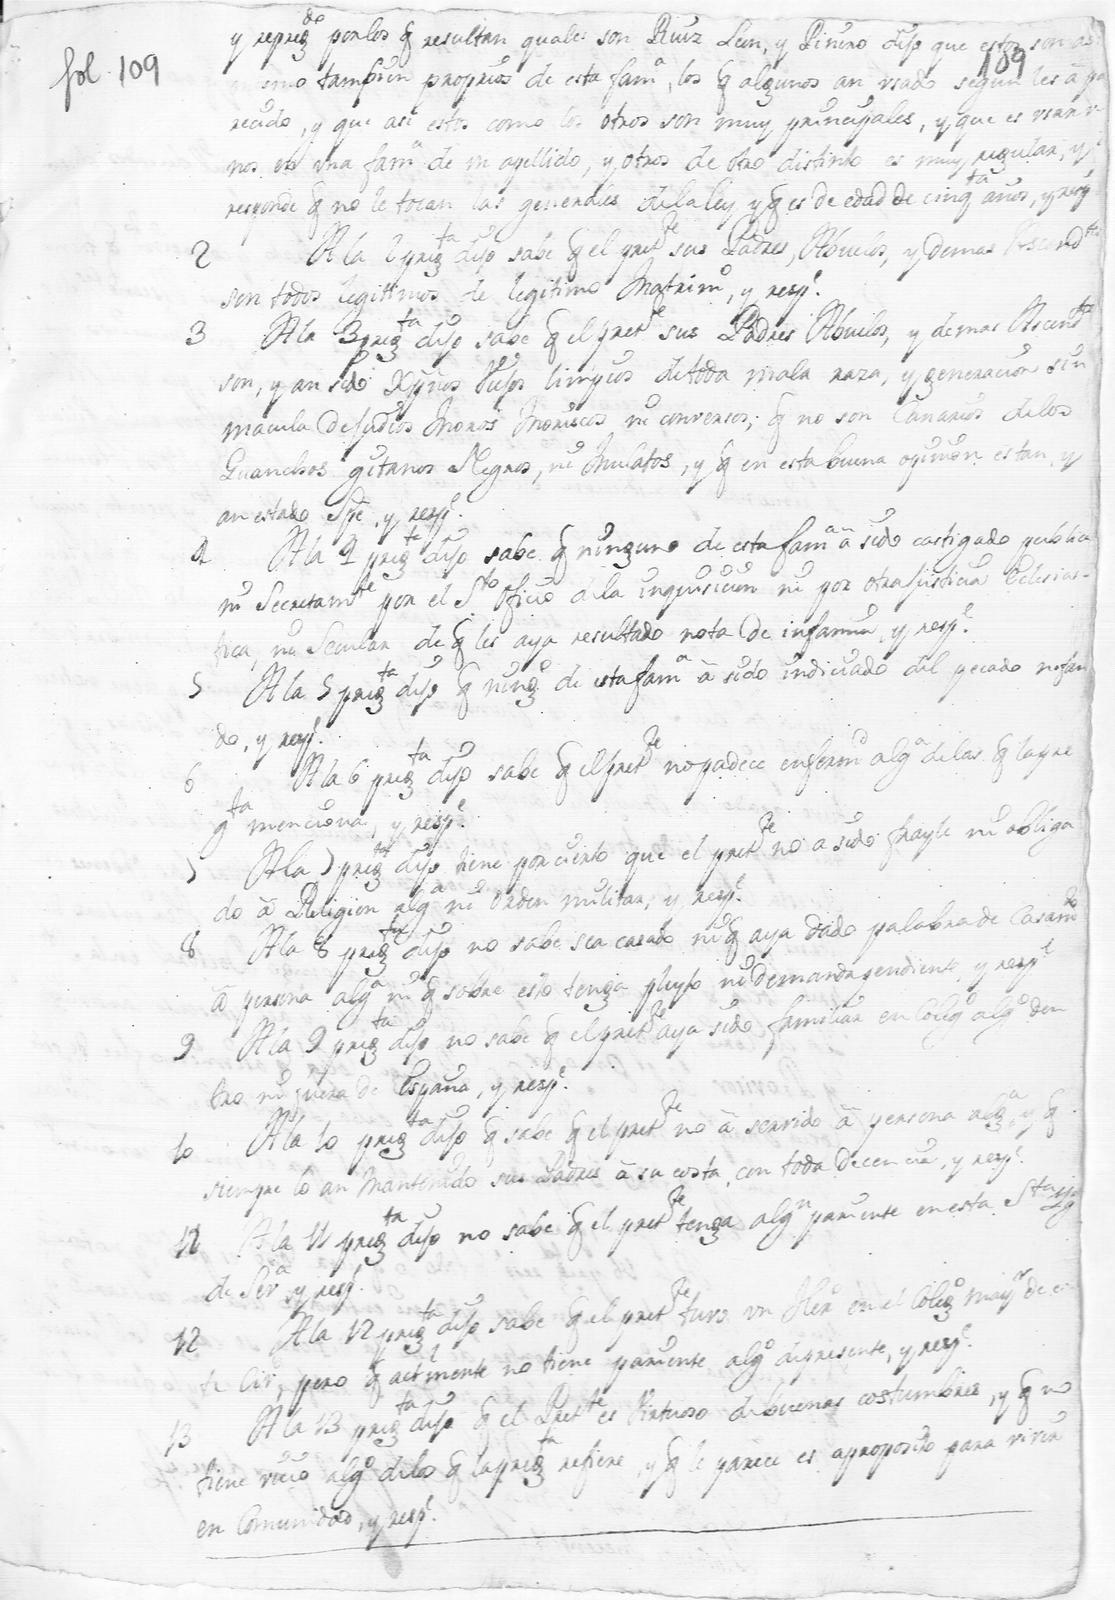 fol. 109
109
y repreg.do por los q resultan quales son Ruiz Leon, y Pinero dijo que estos son as
mismo tambien proprios de esta fam.a, los q algunos an usado segun les à pa
recido, y que asi estos como los otros son muy principales, y que es usar u
nos en una fam.a de un apellido, y otros de otro distinto es muy regular, y
responde q no le tocan las generales de la ley y q es de edad de cinq.ta años, y resp.
2 A la 2 preg.ta dijo sabe q el pret.te sus Padres, Abuelos, y demas Ascend.tes
son todos legitimos de legitimo Matrim.o, y resp.e
3 A la 3 preg.ta dijo sabe q el pret.te sus Padres Abuelos, y demas Ascend.tes
son, y an sido Xpnos Viejos limpios de toda mala raza, y generacion sin
macula de Judios Moros Moriscos ni conversos; q no son Canarios de los
Guanchos gitanos Negros, ni Mulatos, y q en esta buena opinion estan, y
an estado Spre, y resp.e
4 A la 4 preg.ta dijo sabe q ninguno de esta fam.a à sido castigado publica
ni Secretam.te por el S.to oficio de la inquisicion ni por otra justicia Ecclesias-
tica, ni Secular de q les aya resultado nota de infamia, y resp.e
5 A la 5 preg.ta dijo q ning.o de esta fam.a à sido indiciado del pecado nefan
do, y resp.e
6 A la 6 preg.ta dijo sabe q el pret.te no padece enferm.d alg.a de las q la pre
g.ta menciona, y resp.e
7 A la 7 preg.ta dijo tiene por cierto que el pret.te no a sido frayle ni obliga
do à Religion alg.a ni orden militar, y resp.e
8 A la 8 preg.ta dijo no sabe sea casado ni q aya dado palabra de Casam.to
à persona alg.a ni q sobre esto tenga pleyto ni demanda pendiente, y resp.e
9 A la 9 preg.ta dijo no sabe q el pret.te aya sido familiar en Coleg.o alg.o den
tro ni fuera de España, y resp.e
10 A la 10 preg.ta dijo q sabe q el pret.te no à servido à persona alg.a, y q
siempre lo an mantenido sus Padres à su costa, con toda decencia, y resp.e
11 A la 11 preg.ta dijo no sabe q el pret.te tenga alg.n pariente en esta S.ta
de Sev.a y resp.e
12 A la 12 preg.ta dijo sabe q el pret.te tuvo un Her.o en el Coleg.o may.r de es
ta Ciu.d, pero q actlmente no tiene pariente alg.o de presente, y resp.e
13 A la 13 preg.ta dijo q el Pret.te es Virtuoso de buenas costumbres, y q no
tiene vicio alg.o de los q la preg.ta refiere, y q le parece es a proposito para vivir
en Comunidad, y resp.e